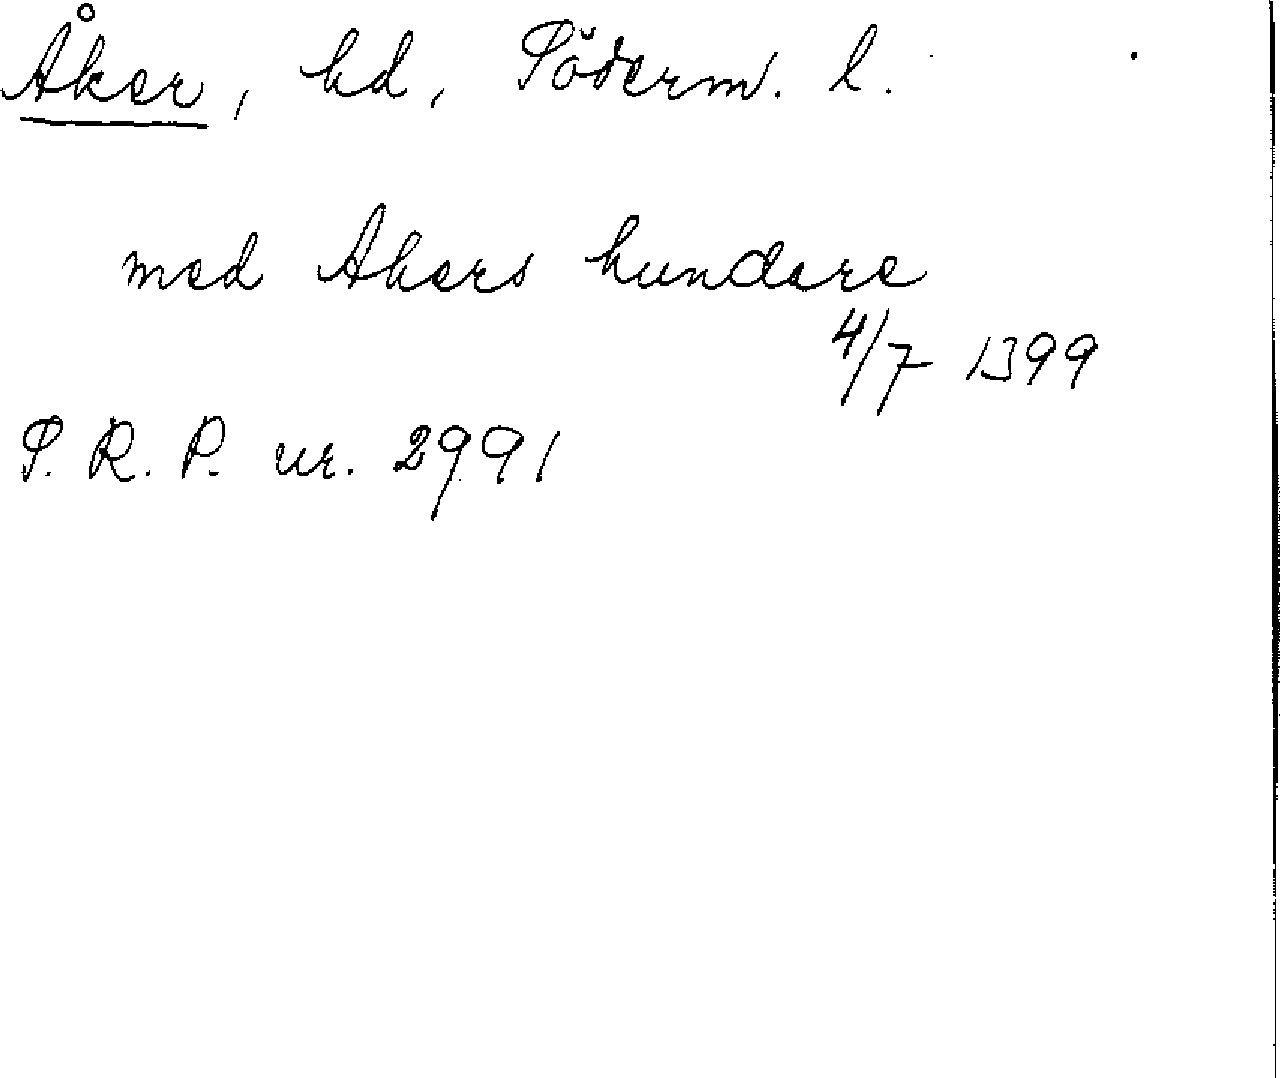 Åker, hd, Söderm. l.
med Akers hundare
4/7 1399
S. R. P. nr. 2991